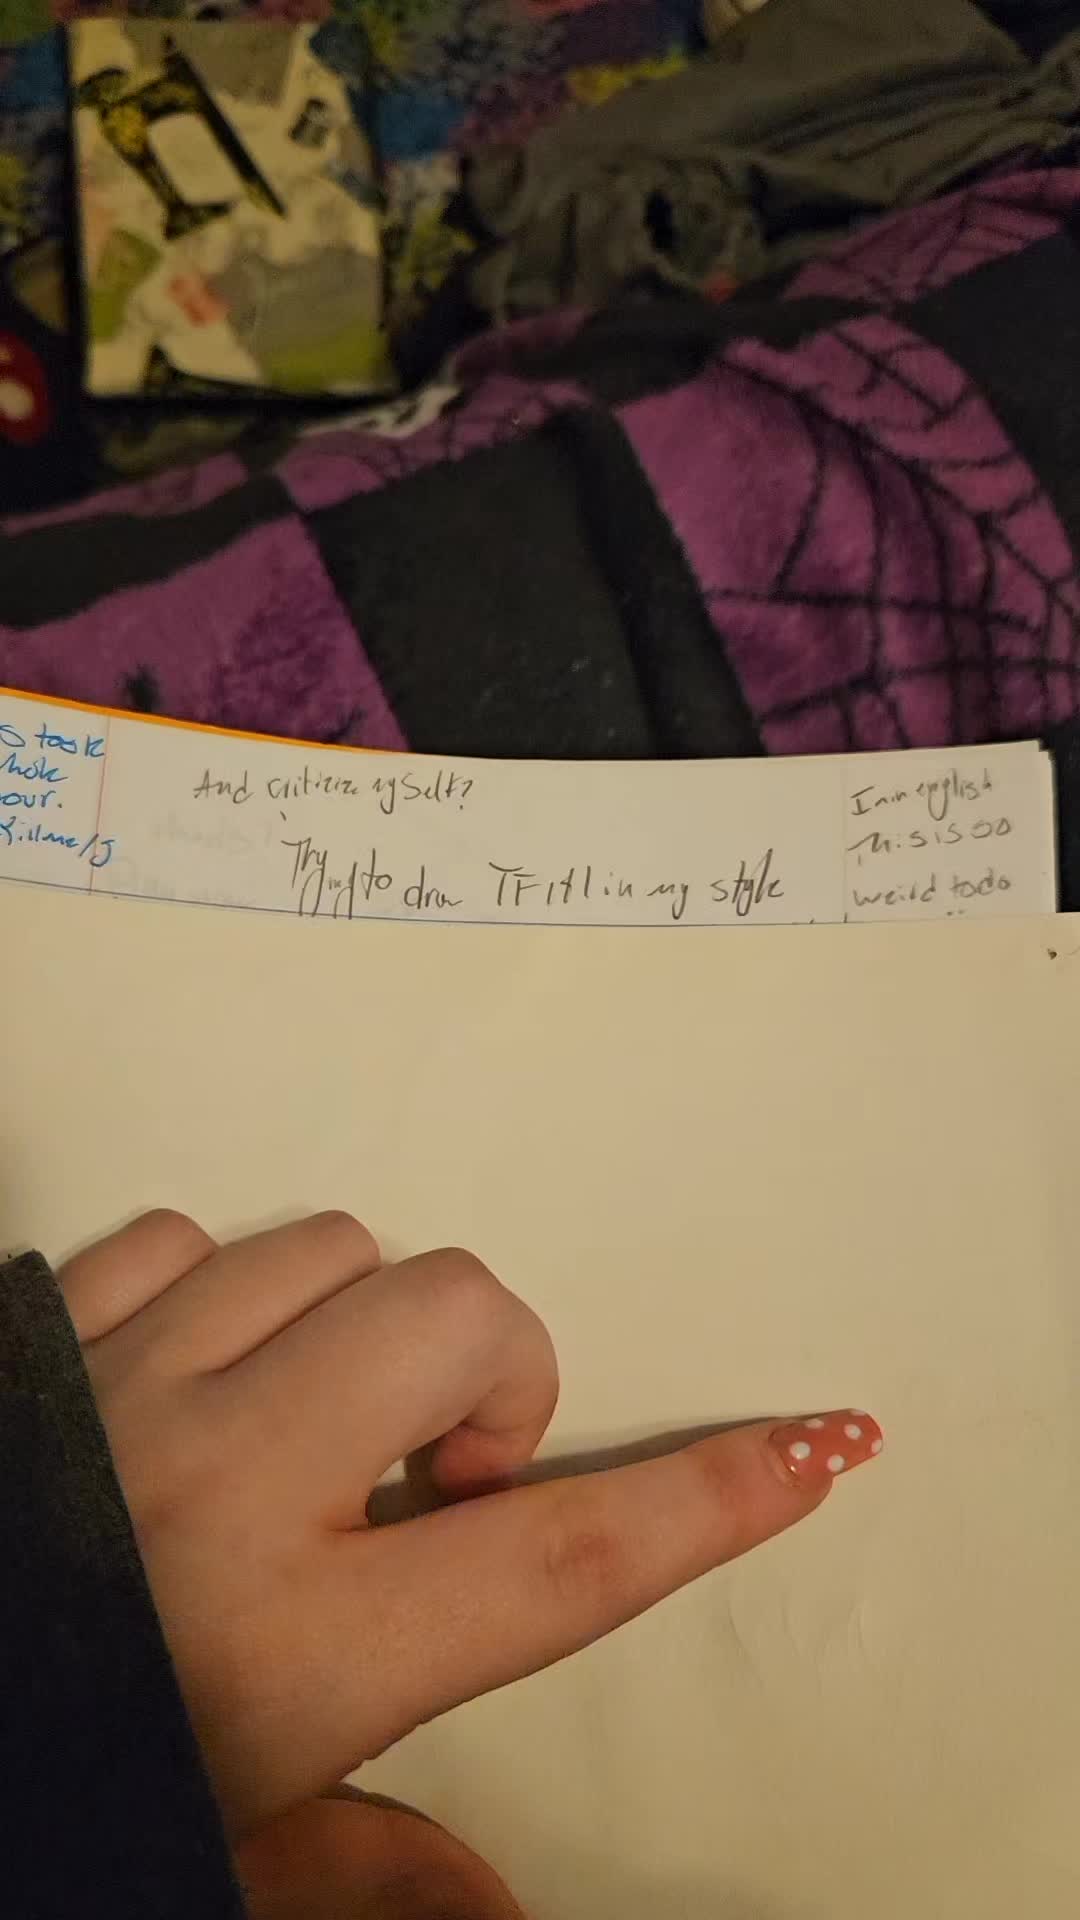 s took
hole
our.
Killme/J
And critizize myself?
Trying to draw TF141 in my style
I am in english
this is so
weird to do